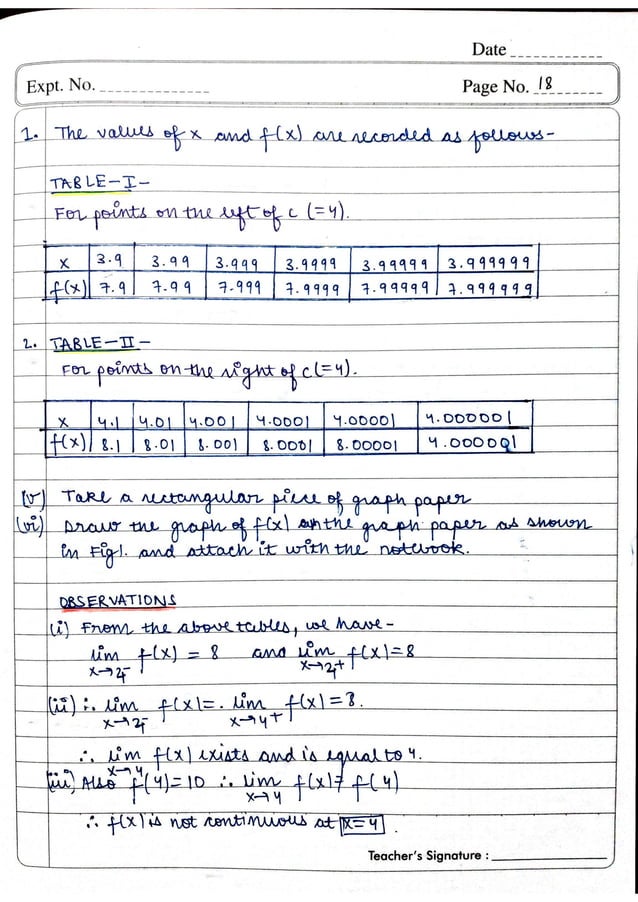 Date
Expt. No.
Page No. 18
1. The values of x and f(x) are recorded as follows-
TABLE-I-
For points on the left of c (=4).
x 3.9 3.99 3.999 3.9999 3.99999 3.999999
f(x) 7.9 7.99 7.999 7.9999 7.99999 7.999999
2. TABLE-II-
For points on the right of c(=4).
x 4.1 4.01 4.001 4.0001 4.00001 4.000001
f(x) 8.1 8.01 8.001 8.0001 8.00001 4.000001
(v) Take a rectangular piece of graph paper
(vi) Draw the graph of f(x) on the graph paper as shown
in Fig1. and attach it with the notebook.
OBSERVATIONS
(i) From the above tables, we have-
lim f(x) = 8 and lim f(x)=8
x→4- x→4+
(ii) ∴ lim f(x)=. lim f(x)=8.
x→4- x→4+
∴ lim f(x) exists and is equal to 4.
x→4
(iii) Also f(4)=10 ∴ lim f(x)≠ f(4)
x→4
∴ f(x) is not continuous at x=4.
Teacher's Signature :